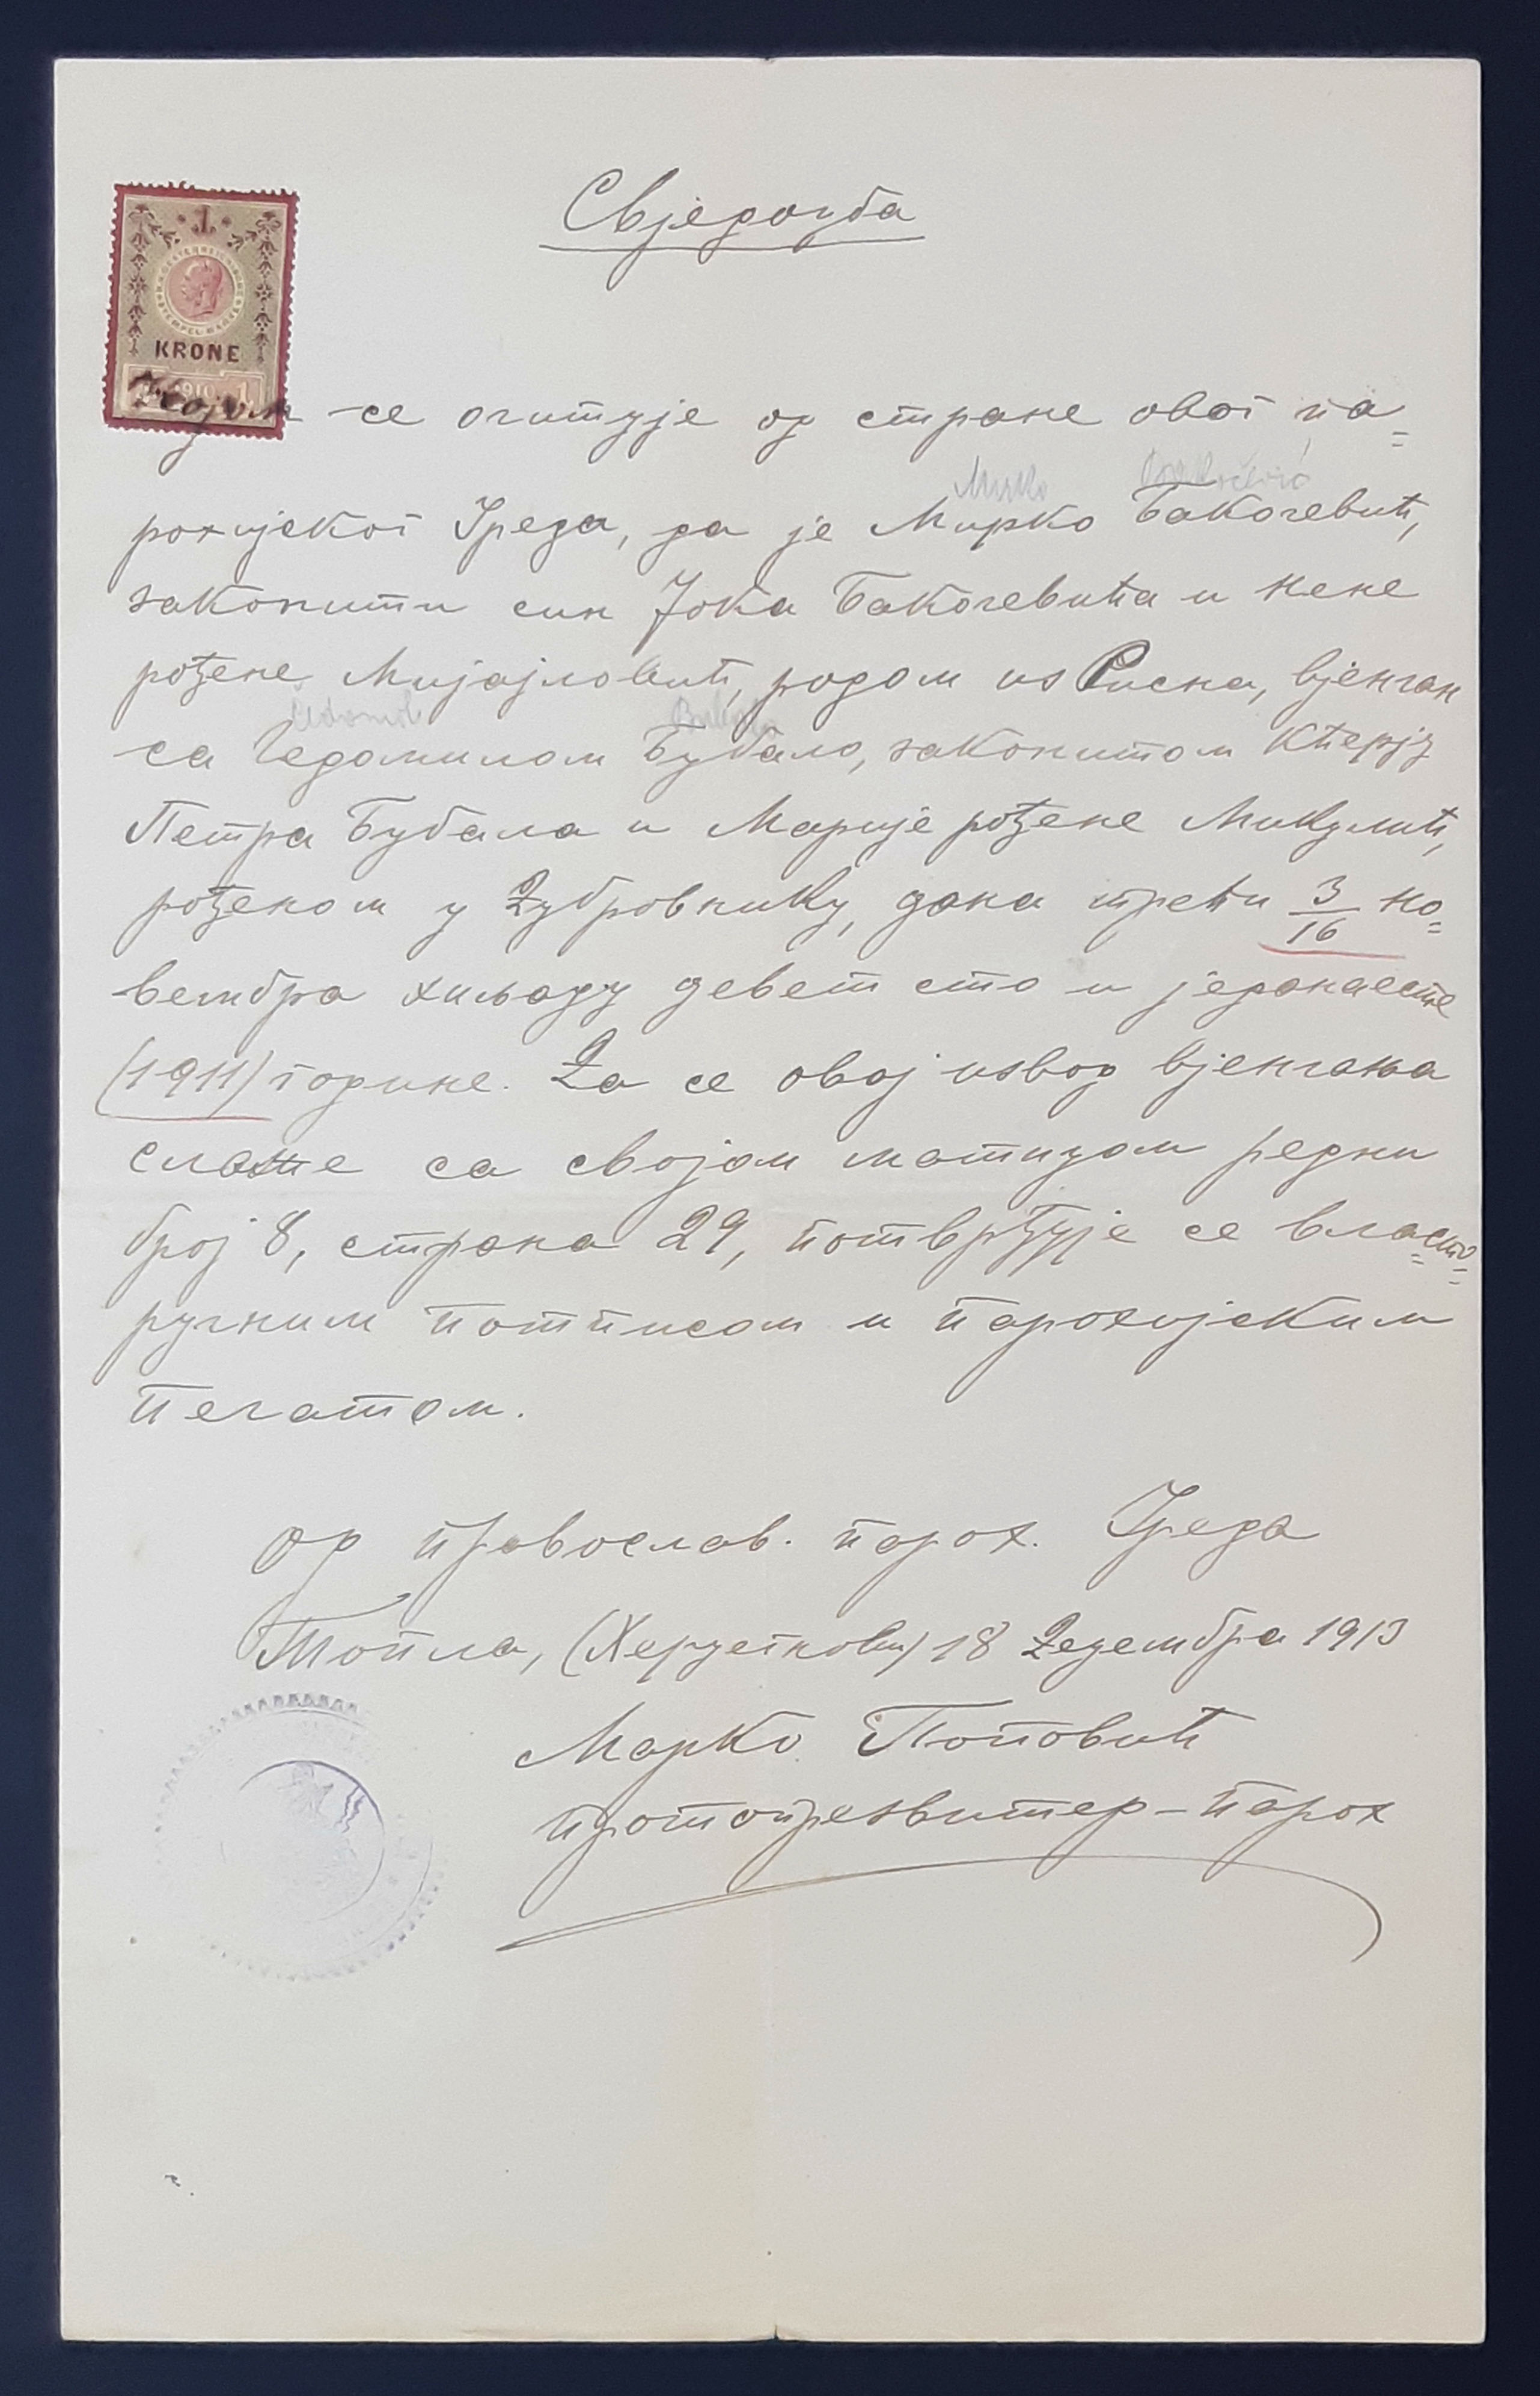 Свједоџба
KRONE
1910
1
Којом се очитује од стране овог па=
Mirko
рохијског Уреда, да је Мирко Бакочевић,
законити син Јока Бакочевића и Нене
рођене Мијајловић, родом из Рисна, вјенчан
са Чедомилом Бубало, законитом кћерју
Петра Бубала и Марије рођене Микулић,
рођеном у Дубровнику, дана трећи 3/16 но=
вембра хиљаду девет сто и једанаесте
(1911) године. Да се овој извод вјенчања
слаже са својом матицом редни
број 8, страна 29, потврђује се власто=
ручним потписом и парохијским
печатом.
Од православ. парох. Уреда
Топла, (Херцегнови) 18 Децембра 1913
Марко Поповић
протопрезвитер - парох